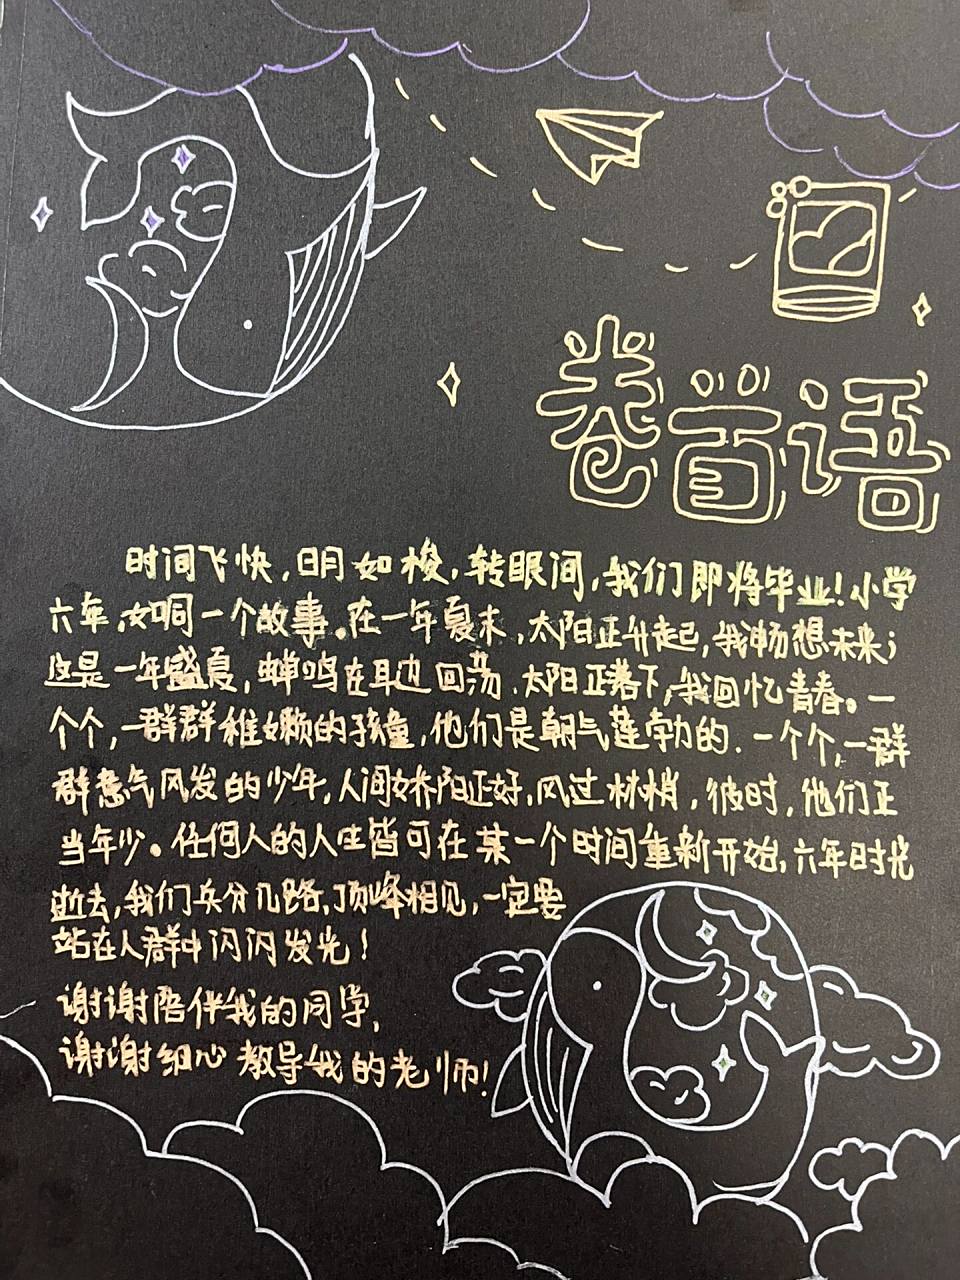 卷首语
时间飞快，日月如梭，转眼间，我们即将毕业！小学
六年，如同一个故事。在一年夏末，太阳正升起，我畅想未来；
这是一年盛夏，蝉鸣在耳边回荡，太阳正落下，我回忆青春。一
个个，一群群稚嫩的孩童，他们是朝气蓬勃的．一个个，一群
群意气风发的少年，人间娇阳正好，风过林梢，彼时，他们正
当年少。任何人的人生皆可在某一个时间重新开始，六年时光
逝去，我们兵分几路，顶峰相见，一定要
站在人群中闪闪发光！
谢谢陪伴我的同学，
谢谢细心教导我的老师！